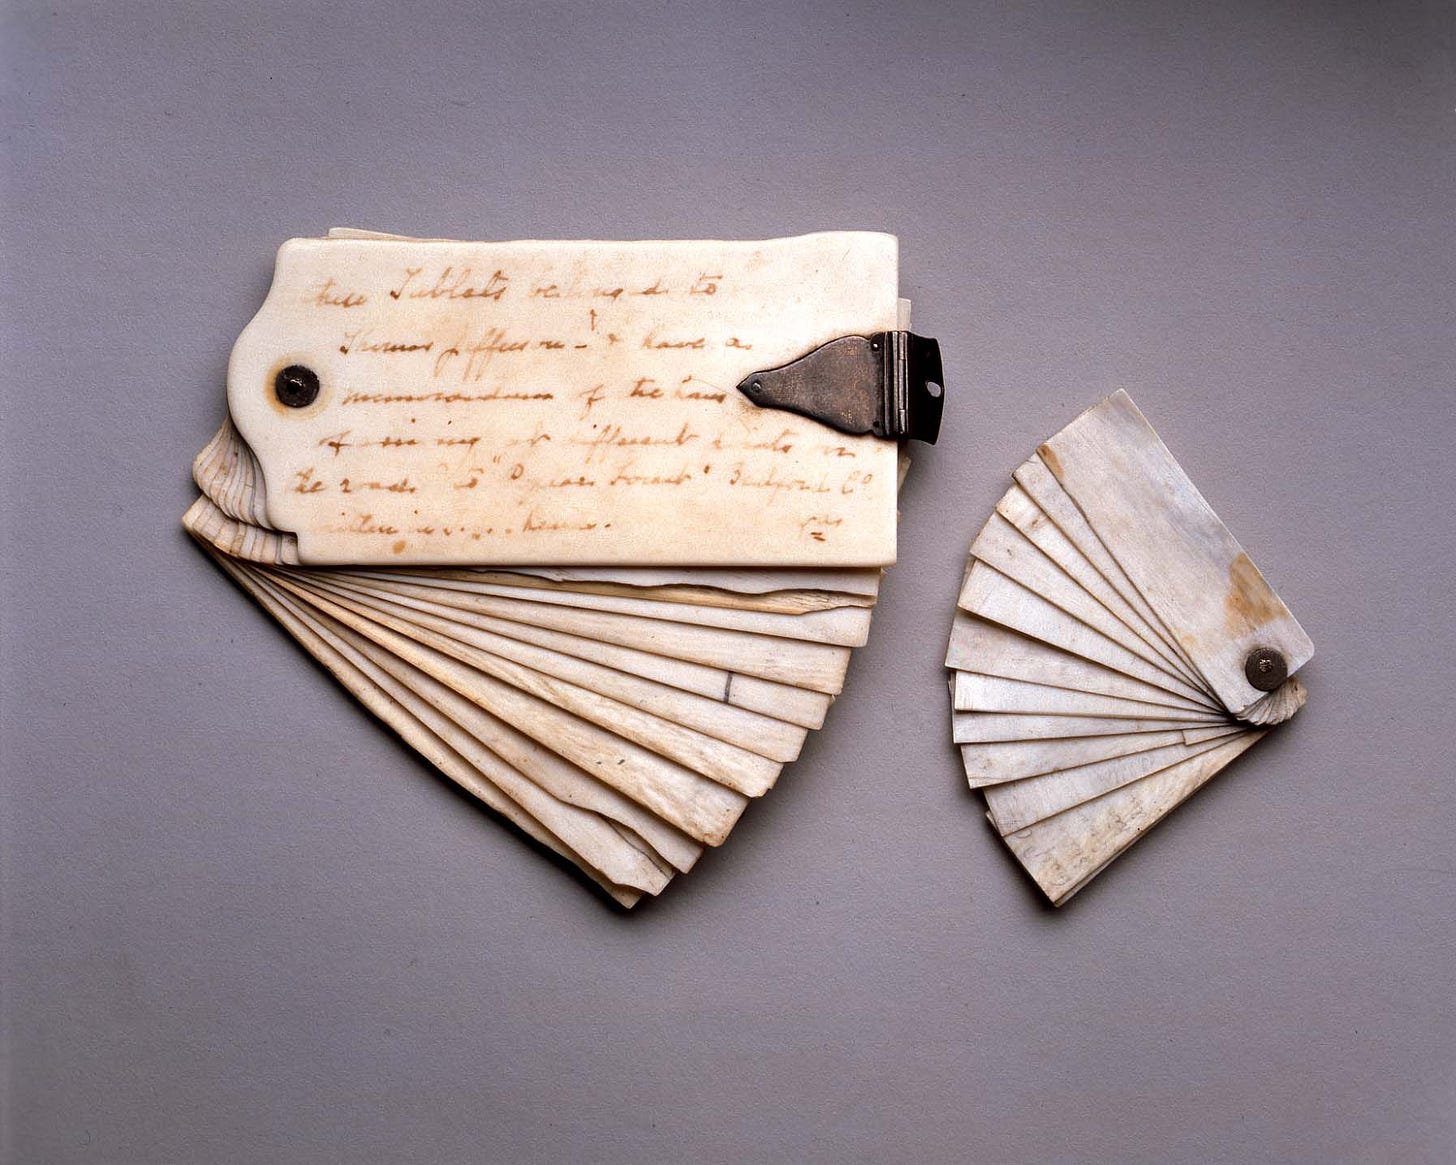 these Tablets belonged to
Thomas Jefferson - & have a
memorandum of the hours
of at different points in
the road to "Poplar Forest" Bedford Co.